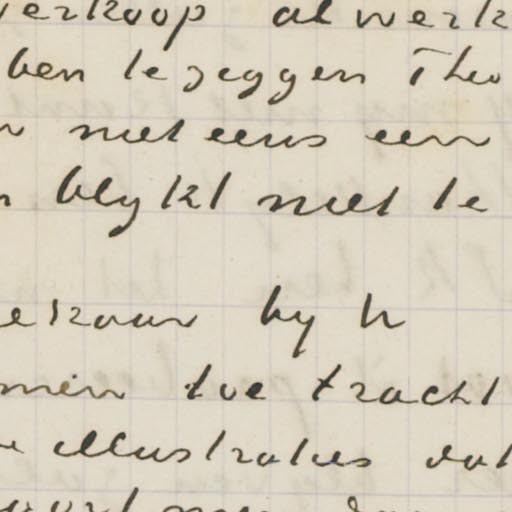 verkoop al werk
ben te zeggen Theo
niet eens een
blykt niet te
by h
toe tracht
illustraties dat